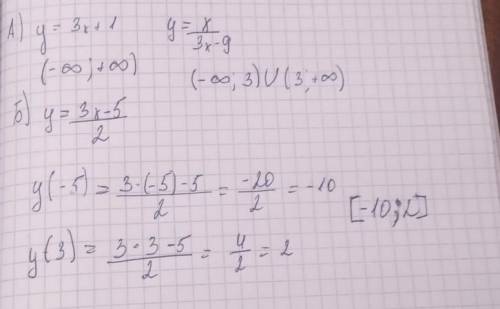 А) y = 3x+1    y = x/(3x-9)
(-∞; +∞)    (-∞; 3) ∪ (3; +∞)
Б) y = (3x-5)/2
y(-5) = (3·(-5)-5)/2 = -20/2 = -10
[-10; 2]
y(3) = (3·3-5)/2 = 4/2 = 2